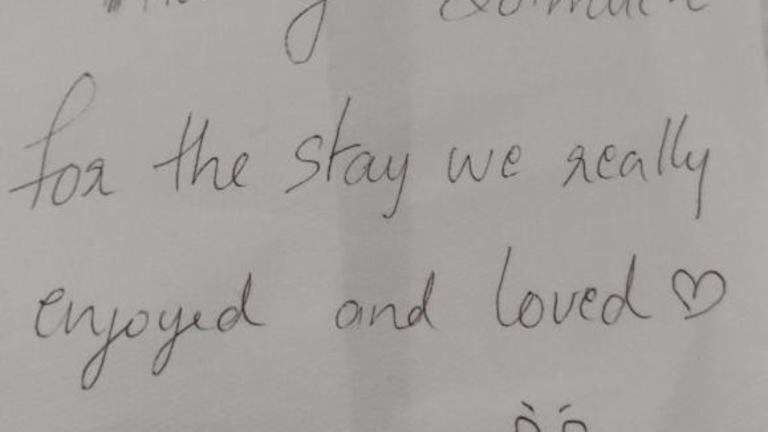 for the stay we really
enjoyed and loved ♡